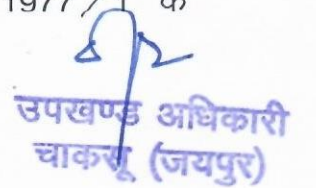 1977 / 1 क
उपखण्ड अधिकारी
चाकसू (जयपुर)